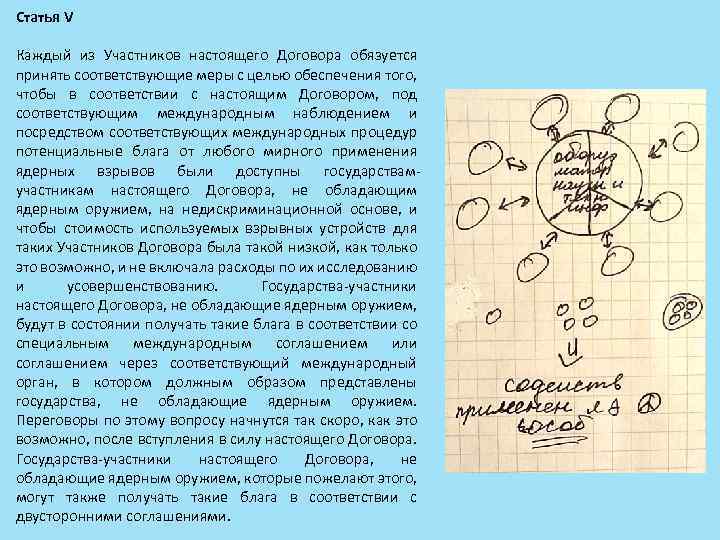 Статья V
Каждый из Участников настоящего Договора обязуется
принять соответствующие меры с целью обеспечения того,
чтобы в соответствии с настоящим Договором, под
соответствующим международным наблюдением и
посредством соответствующих международных процедур
потенциальные блага от любого мирного применения
ядерных взрывов были доступны государствам-
участникам настоящего Договора, не обладающим
ядерным оружием, на недискриминационной основе, и
чтобы стоимость используемых взрывных устройств для
таких Участников Договора была такой низкой, как только
это возможно, и не включала расходы по их исследованию
и усовершенствованию. Государства-участники
настоящего Договора, не обладающие ядерным оружием,
будут в состоянии получать такие блага в соответствии со
специальным международным соглашением или
соглашением через соответствующий международный
орган, в котором должным образом представлены
государства, не обладающие ядерным оружием.
Переговоры по этому вопросу начнутся так скоро, как это
возможно, после вступления в силу настоящего Договора.
Государства-участники настоящего Договора, не
обладающие ядерным оружием, которые пожелают этого,
могут также получать такие блага в соответствии с
двусторонними соглашениями.
оборуд
матер
научн и
техн
инф
и
содейств
применен ЯЭ
особ